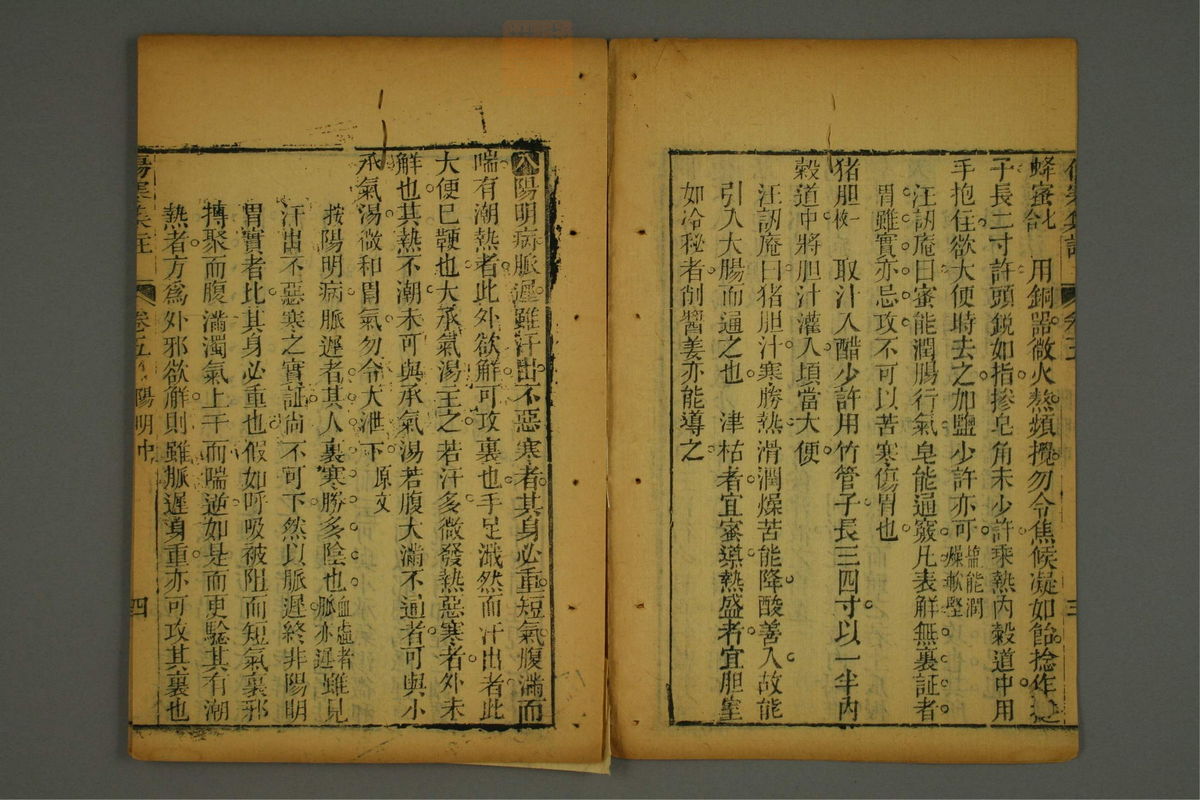 蜂蜜七合　用銅器微火熬頻攪勿令焦候凝如飴捻作挺
子長二寸許頭銳如指摻皂角末少許乘熱內穀道中用
手抱住欲大便時去之加鹽少許亦可鹽能潤燥軟堅
汪訒庵曰蜜能潤腸行氣皂能通竅凡表解無裏証者
胃雖實亦忌攻不可以苦寒傷胃也
猪胆一枚　取汁入醋少許用竹管子長三四寸以一半內
穀道中將胆汁灌入頃當大便
汪訒庵曰猪胆汁寒勝熱滑潤燥苦能降酸善入故能
引入大腸而通之也　津枯者宜蜜導熱盛者宜胆導
如冷秘者削醬姜亦能導之
卷五
三
八陽明病脈遲雖汗出不惡寒者其身必重短氣腹滿而
喘有潮熱者此外欲解可攻裏也手足濈然而汗出者此
大便已鞕也大承氣湯主之若汗多微發熱惡寒者外未
解也其熱不潮未可與承氣湯若腹大滿不通者可與小
承氣湯微和胃氣勿令大泄下　原文
按陽明病脈遲者其人裏寒勝多陰也血虛者脈亦遲雖見
汗出不惡寒之實証尚不可下然以脈遲終非陽明
胃實者比其身必重也假如呼吸被阻而短氣裏邪
摶聚而腹滿濁氣上干而喘逆如是而更驗其有潮
熱者方為外邪欲解則雖脈遲身重亦可攻其裏也
傷寒集註
卷五
陽明中
四